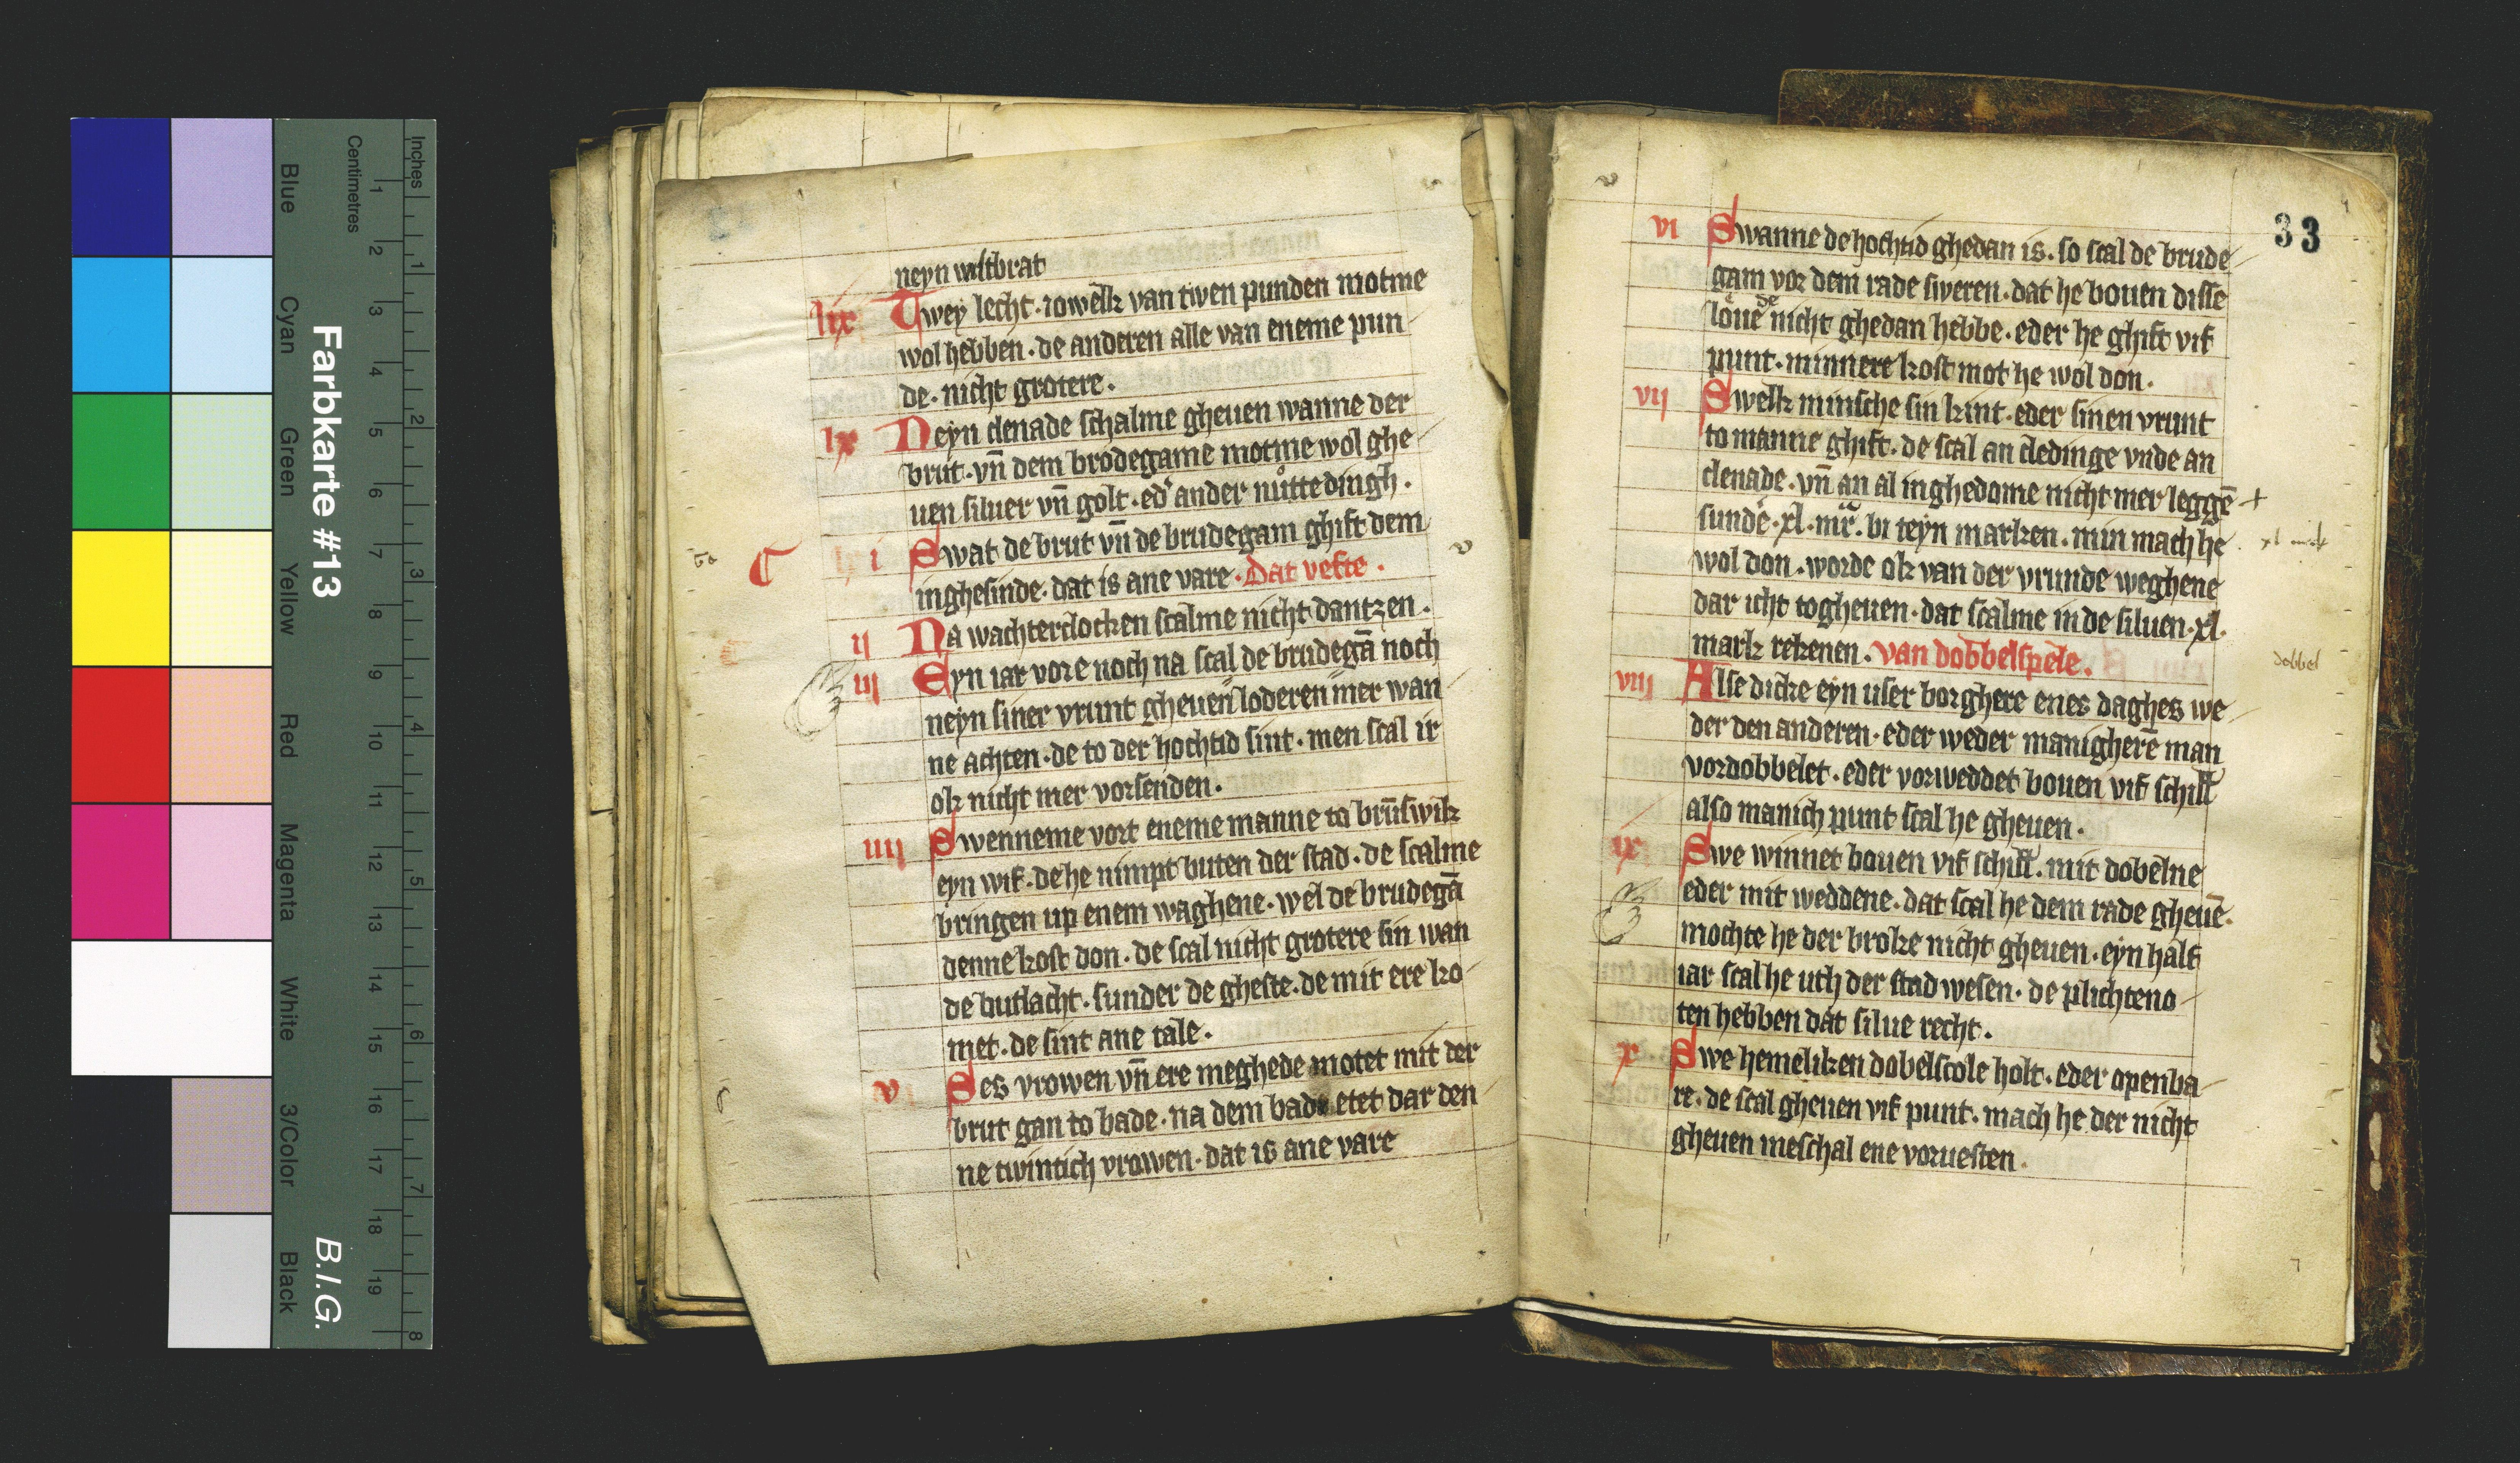 Inches
Centimetres
Blue
Cyan
Green
Yellow
Red
Magenta
White
3/Color
Black
Farbkarte #13
B.I.G.
1 2 3 4 5 6 7 8 9 10 11 12 13 14 15 16 17 18 19
1 2 3 4 5 6 7 8
neyn wiltbrat
lix Twey lecht · iowelk van twen punden motme
wol hebben · de anderen alle van eneme pun
de · nicht grotere ·
lx Neyn clenade schalme gheuen wanne der
brut · vn̄ dem brodegame motme wol ghe
uen siluer vn̄ golt · ed' ander nůtte dingh ·
i Swat de brut vn̄ de brudegam ghift dem
inghesinde · dat is ane vare · Dat vefte ·
ij Na wachterclocken scalme nicht dantzen ·
iij Eyn iar vore noch na scal de brudegā noch
neyn siner vrunt gheuen loderen mer wan
ne achten · de to der hochtid sint · men scal ir
ok nicht mer vorsenden ·
iiij Swenneme vort eneme manne to brūswik
eyn wif · de he nimpt buten der stad · de scalme
bringen up enem waghene · wel de brudegā
denne kost don · de scal nicht grotere sin wan
de butlacht · sunder de gheste · de mit ere ko
met · de sint ane tale ·
v Ses vrowen vn̄ ere meghede motet mit der
brut gan to bade · na dem bade etet dar den
ne twintich vrowen · dat is ane vare
33
vi Swanne de hochtid ghedan is · so scal de brude
gam vor dem rade sweren · dat he bouen disse
loue de nicht ghedan hebbe · eder he ghift vif
punt · minnere kost mot he wol don ·
vij Swelk minsche sin kint · eder sinen vrunt
to manne ghift · de scal an cledinge vnde an
clenade · vn̄ an al inghedome nicht mer leggē +
sunde · xl · mr̄ · bi teyn marken · min mach he
xl mark
wol don · worde ok van der vrunde weghene
dar icht togheuen · dat scalme in de siluen · xl ·
mark rekenen · van dobbelspele ·
dobbel
viij Alse dicke eyn user borghere enes daghes we
der den anderen · eder weder manigherē man
vordobbelet · eder vorweddet bouen vif schill
also manich punt scal he gheuen ·
ix Swe winnet bouen vif schill · mit dobelne
eder mit weddene · dat scal he dem rade gheuē ·
mochte he der broke nicht gheuen · eyn half
iar scal he uth der stad wesen · de plichteno
ten hebben dat silue recht ·
x Swe hemeliken dobelscole holt · eder openba
re · de scal gheuen vif punt · mach he der nicht
gheuen meschal ene voruesten ·